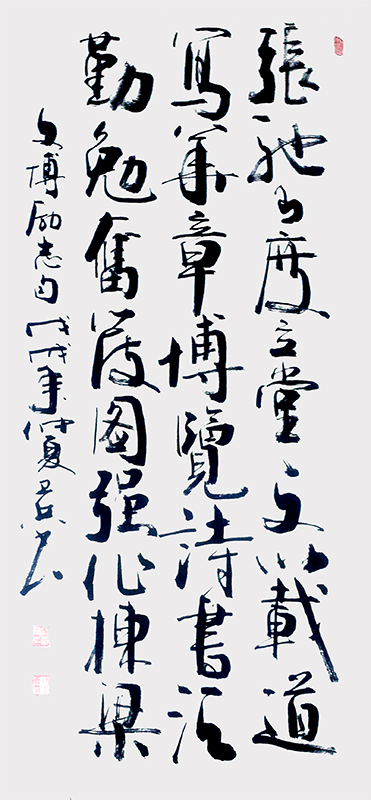 張弛有度立堂文以載道
寫華章博覽詩書須
勤勉奮發图强作棟梁
文博励志句戊戌年仲夏